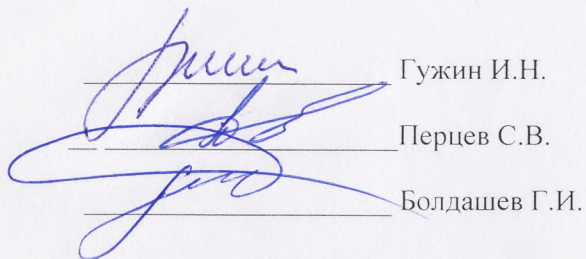 Гужин И.Н.
Перцев С.В.
Болдашев Г.И.